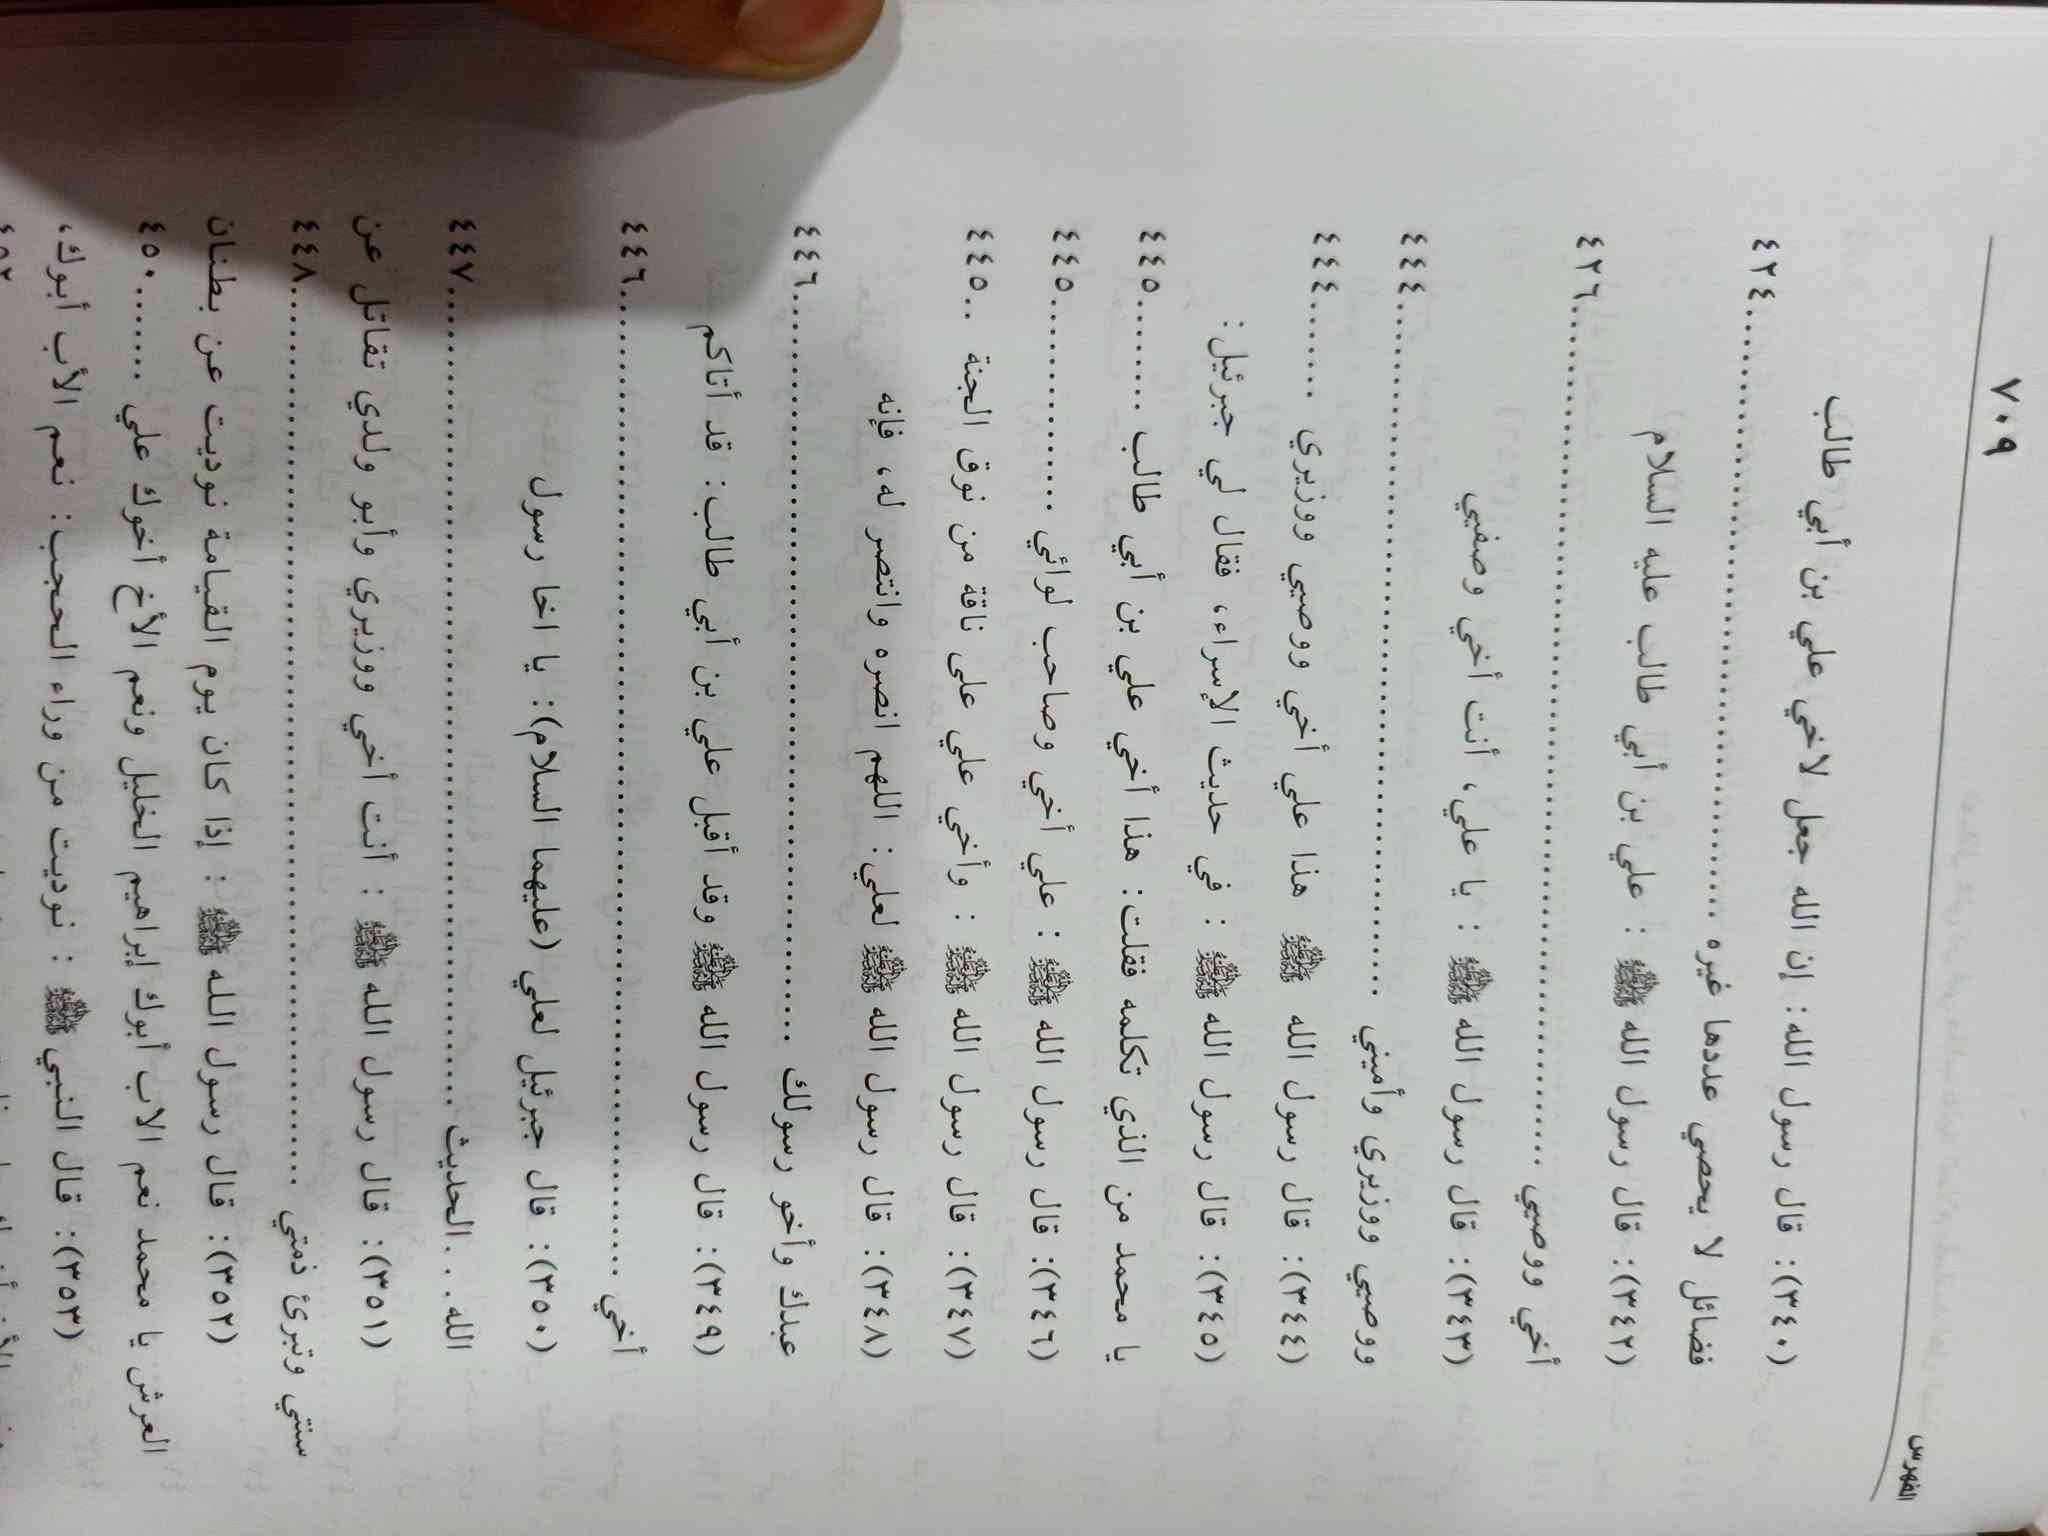 الفهرس ٧٠٩
(٣٤٠): قال رسول الله: إن الله جعل لاخي علي بن أبي طالب
فضائل لا يحصي عددها غيره .......... ٤٢٤
(٣٤٢): قال رسول الله ﷺ : علي بن أبي طالب عليه السلام
أخي ووصيي .......... ٤٢٦
(٣٤٣): قال رسول الله ﷺ : يا علي، أنت أخي وصفيي
ووصيي ووزيري وأميني .......... ٤٤٤
(٣٤٤): قال رسول الله ﷺ هذا علي أخي ووصيي ووزيري ...... ٤٤٤
(٣٤٥): قال رسول الله ﷺ : في حديث الإسراء، فقال لي جبرئيل:
يا محمد من الذي تكلمه فقلت: هذا أخي علي بن أبي طالب ....... ٤٤٥
(٣٤٦): قال رسول الله ﷺ : علي أخي وصاحب لوائي .......... ٤٤٥
(٣٤٧): قال رسول الله ﷺ : وأخي علي على ناقة من نوق الجنة .. ٤٤٥
(٣٤٨): قال رسول الله ﷺ لعلي: اللهم انصره وانتصر له، فإنه
عبدك وأخو رسولك .......... ٤٤٦
(٣٤٩): قال رسول الله ﷺ وقد أقبل علي بن أبي طالب: قد أتاكم
أخي .......... ٤٤٦
(٣٥٠): قال جبرئيل لعلي (عليهما السلام): يا اخا رسول
الله . . .الحديث .......... ٤٤٧
(٣٥١): قال رسول الله ﷺ : أنت أخي ووزيري وأبو ولدي تقاتل عن
سنتي وتبرئ ذمتي .......... ٤٤٨
(٣٥٢): قال رسول الله ﷺ : إذا كان يوم القيامة نوديت عن بطنان
العرش يا محمد نعم الاب أبوك إبراهيم الخليل ونعم الأخ أخوك علي ...... ٤٥٠
(٣٥٣): قال النبي ﷺ : نوديت من وراء الحجب: نعم الأب أبوك،